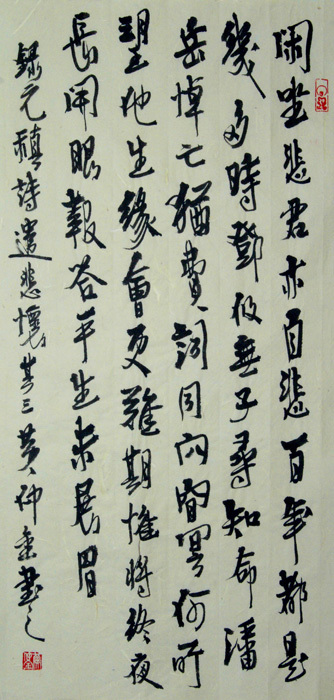 閑坐悲君亦自悲百年都是
幾多時鄧攸無子尋知命潘
岳悼亡猶費詞同穴窅冥何所
望他生緣會更難期惟將終夜
長開眼報答平生未展眉
錄元稹詩遣悲懷其三黄仲書之